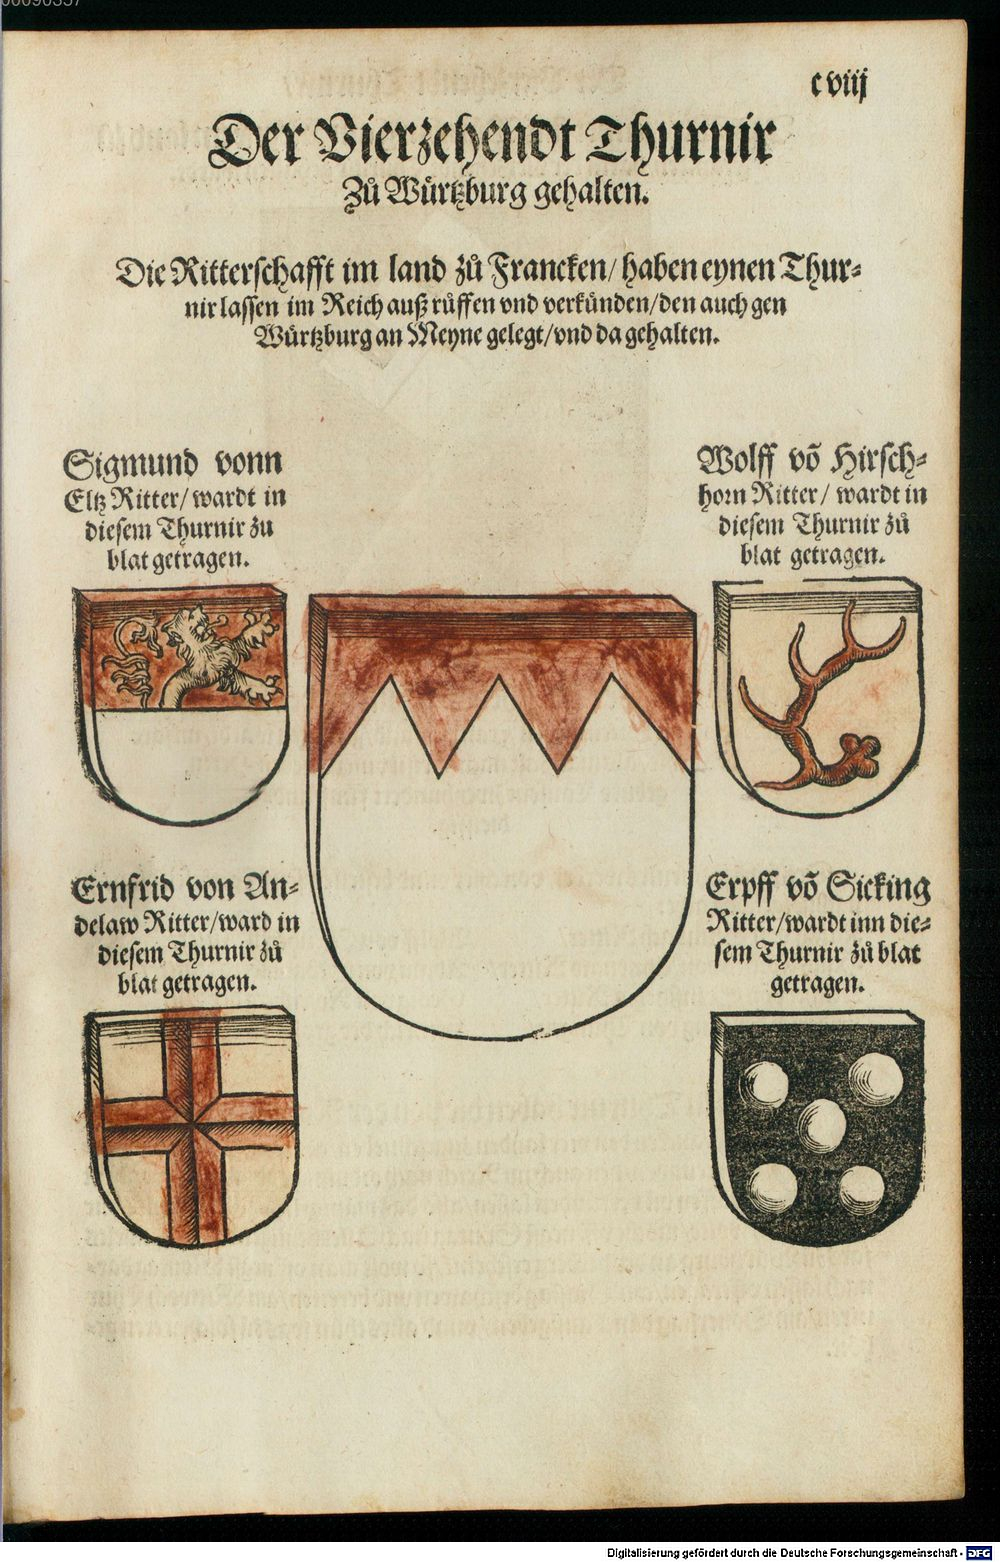 c viij
Der Vierzehendt Thurnir
Zů Würtzburg gehalten.
Die Ritterschafft im land zů Francken/ haben eynen Thur-
nir lassen im Reich auß růffen vnd verkünden/den auch gen
Würtzburg an Meyne gelegt/vnd da gehalten.
Sigmund vonn
Eltz Ritter/ wardt in
diesem Thurnir zu
blat getragen.
Wolff võ Hirsch-
horn Ritter/ wardt in
diesem Thurnir zů
blat getragen.
Ernfrid von An-
delaw Ritter/ward in
diesem Thurnir zů
blat getragen.
Erpff võ Sicking
Ritter/wardt inn die-
sem Thurnir zů blat
getragen.
Digitalisierung gefördert durch die Deutsche Forschungsgemeinschaft - DFG